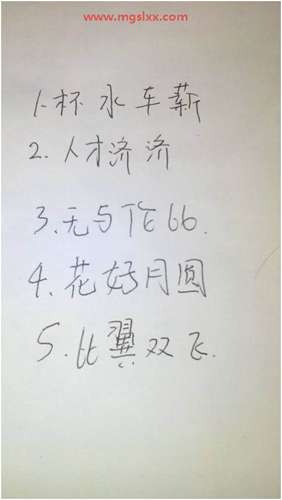 www.mgslxx.com
1.杯水车薪
2.人才济济
3.无与伦比.
4.花好月圆
5.比翼双飞.